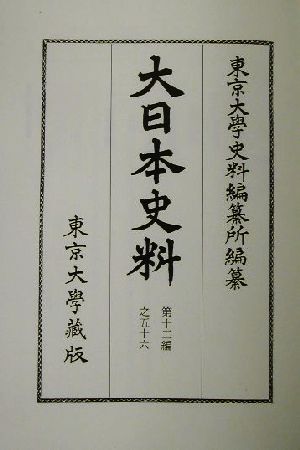 東京大學史料編纂所編纂
大日本史料
第十二編
之五十六
東京大學藏版